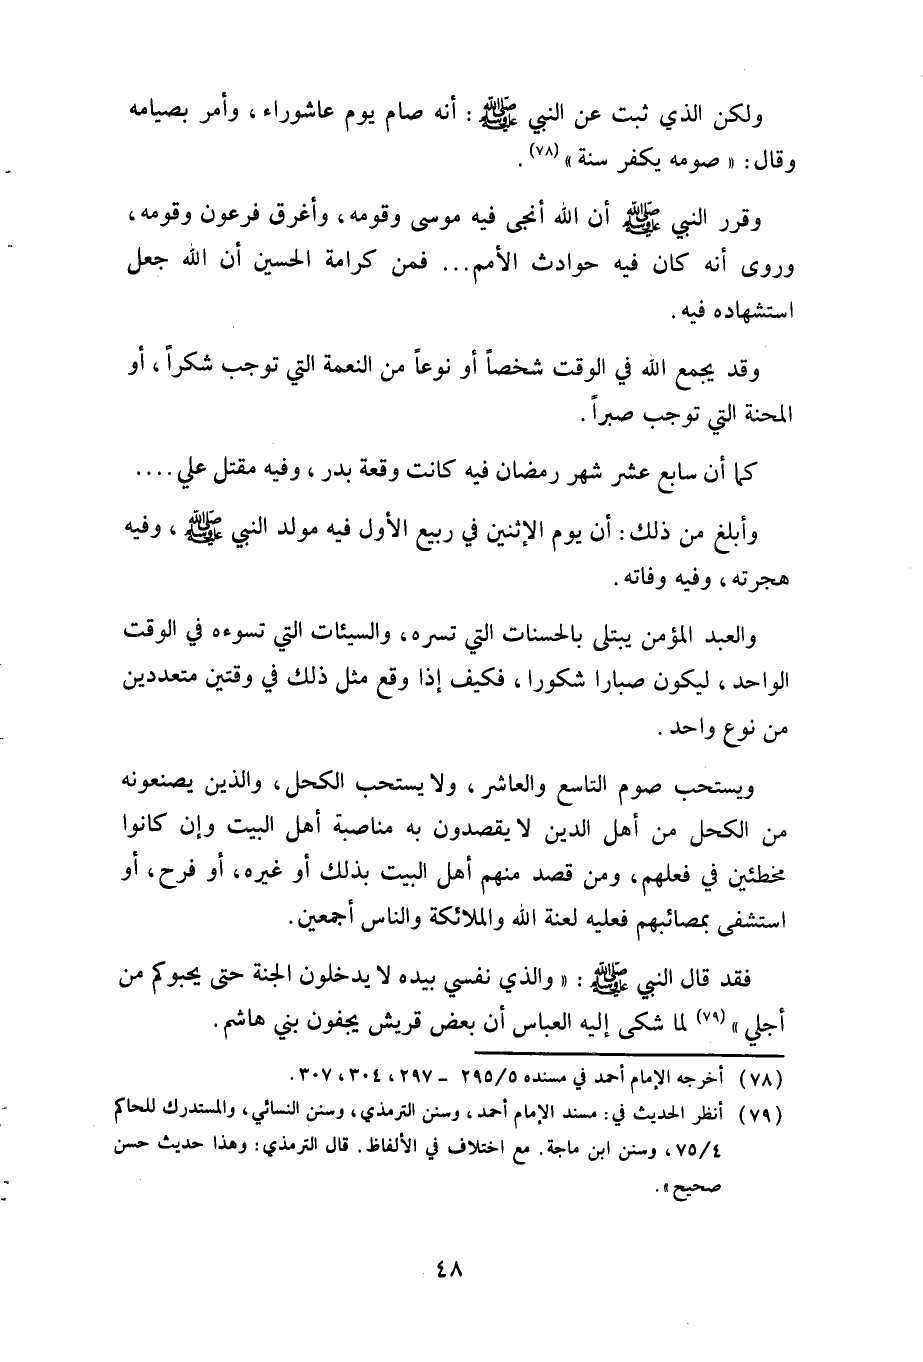 ولكن الذي ثبت عن النبي ﷺ : أنه صام يوم عاشوراء ، وأمر بصيامه
وقال : « صومه يكفر سنة » (٧٨) .
وقرر النبي ﷺ أن الله أنجى فيه موسى وقومه ، وأغرق فرعون وقومه ،
وروى أنه كان فيه حوادث الأمم ... فمن كرامة الحسين أن الله جعل
استشهاده فيه .
وقد يجمع الله في الوقت شخصاً أو نوعاً من النعمة التي توجب شكراً ، أو
المحنة التي توجب صبراً .
كما أن سابع عشر شهر رمضان فيه كانت وقعة بدر ، وفيه مقتل علي ....
وأبلغ من ذلك : أن يوم الإثنين في ربيع الأول فيه مولد النبي ﷺ ، وفيه
هجرته ، وفيه وفاته .
والعبد المؤمن يبتلى بالحسنات التي تسره ، والسيئات التي تسوءه في الوقت
الواحد ، ليكون صبارا شكورا ، فكيف إذا وقع مثل ذلك في وقتين متعددين
من نوع واحد .
ويستحب صوم التاسع والعاشر ، ولا يستحب الكحل ، والذين يصنعونه
من الكحل من أهل الدين لا يقصدون به مناصبة أهل البيت وإن كانوا
مخطئين في فعلهم ، ومن قصد منهم أهل البيت بذلك أو غيره ، أو فرح ، أو
استشفى بمصائبهم فعليه لعنة الله والملائكة والناس أجمعين .
فقد قال النبي ﷺ : « والذي نفسي بيده لا يدخلون الجنة حتى يحبوكم من
أجلي » (٧٩) لما شكى إليه العباس أن بعض قريش يجفون بني هاشم .
(٧٨) أخرجه الإمام أحمد في مسنده ٢٩٥/٥ - ٢٩٧ ، ٣٠٤ ، ٣٠٧ .
(٧٩) أنظر الحديث في : مسند الإمام أحمد ، وسنن الترمذي ، وسنن النسائي ، والمستدرك للحاكم
٧٥/٤ ، وسنن ابن ماجة . مع اختلاف في الألفاظ . قال الترمذي : وهذا حديث حسن
صحيح » .
٤٨